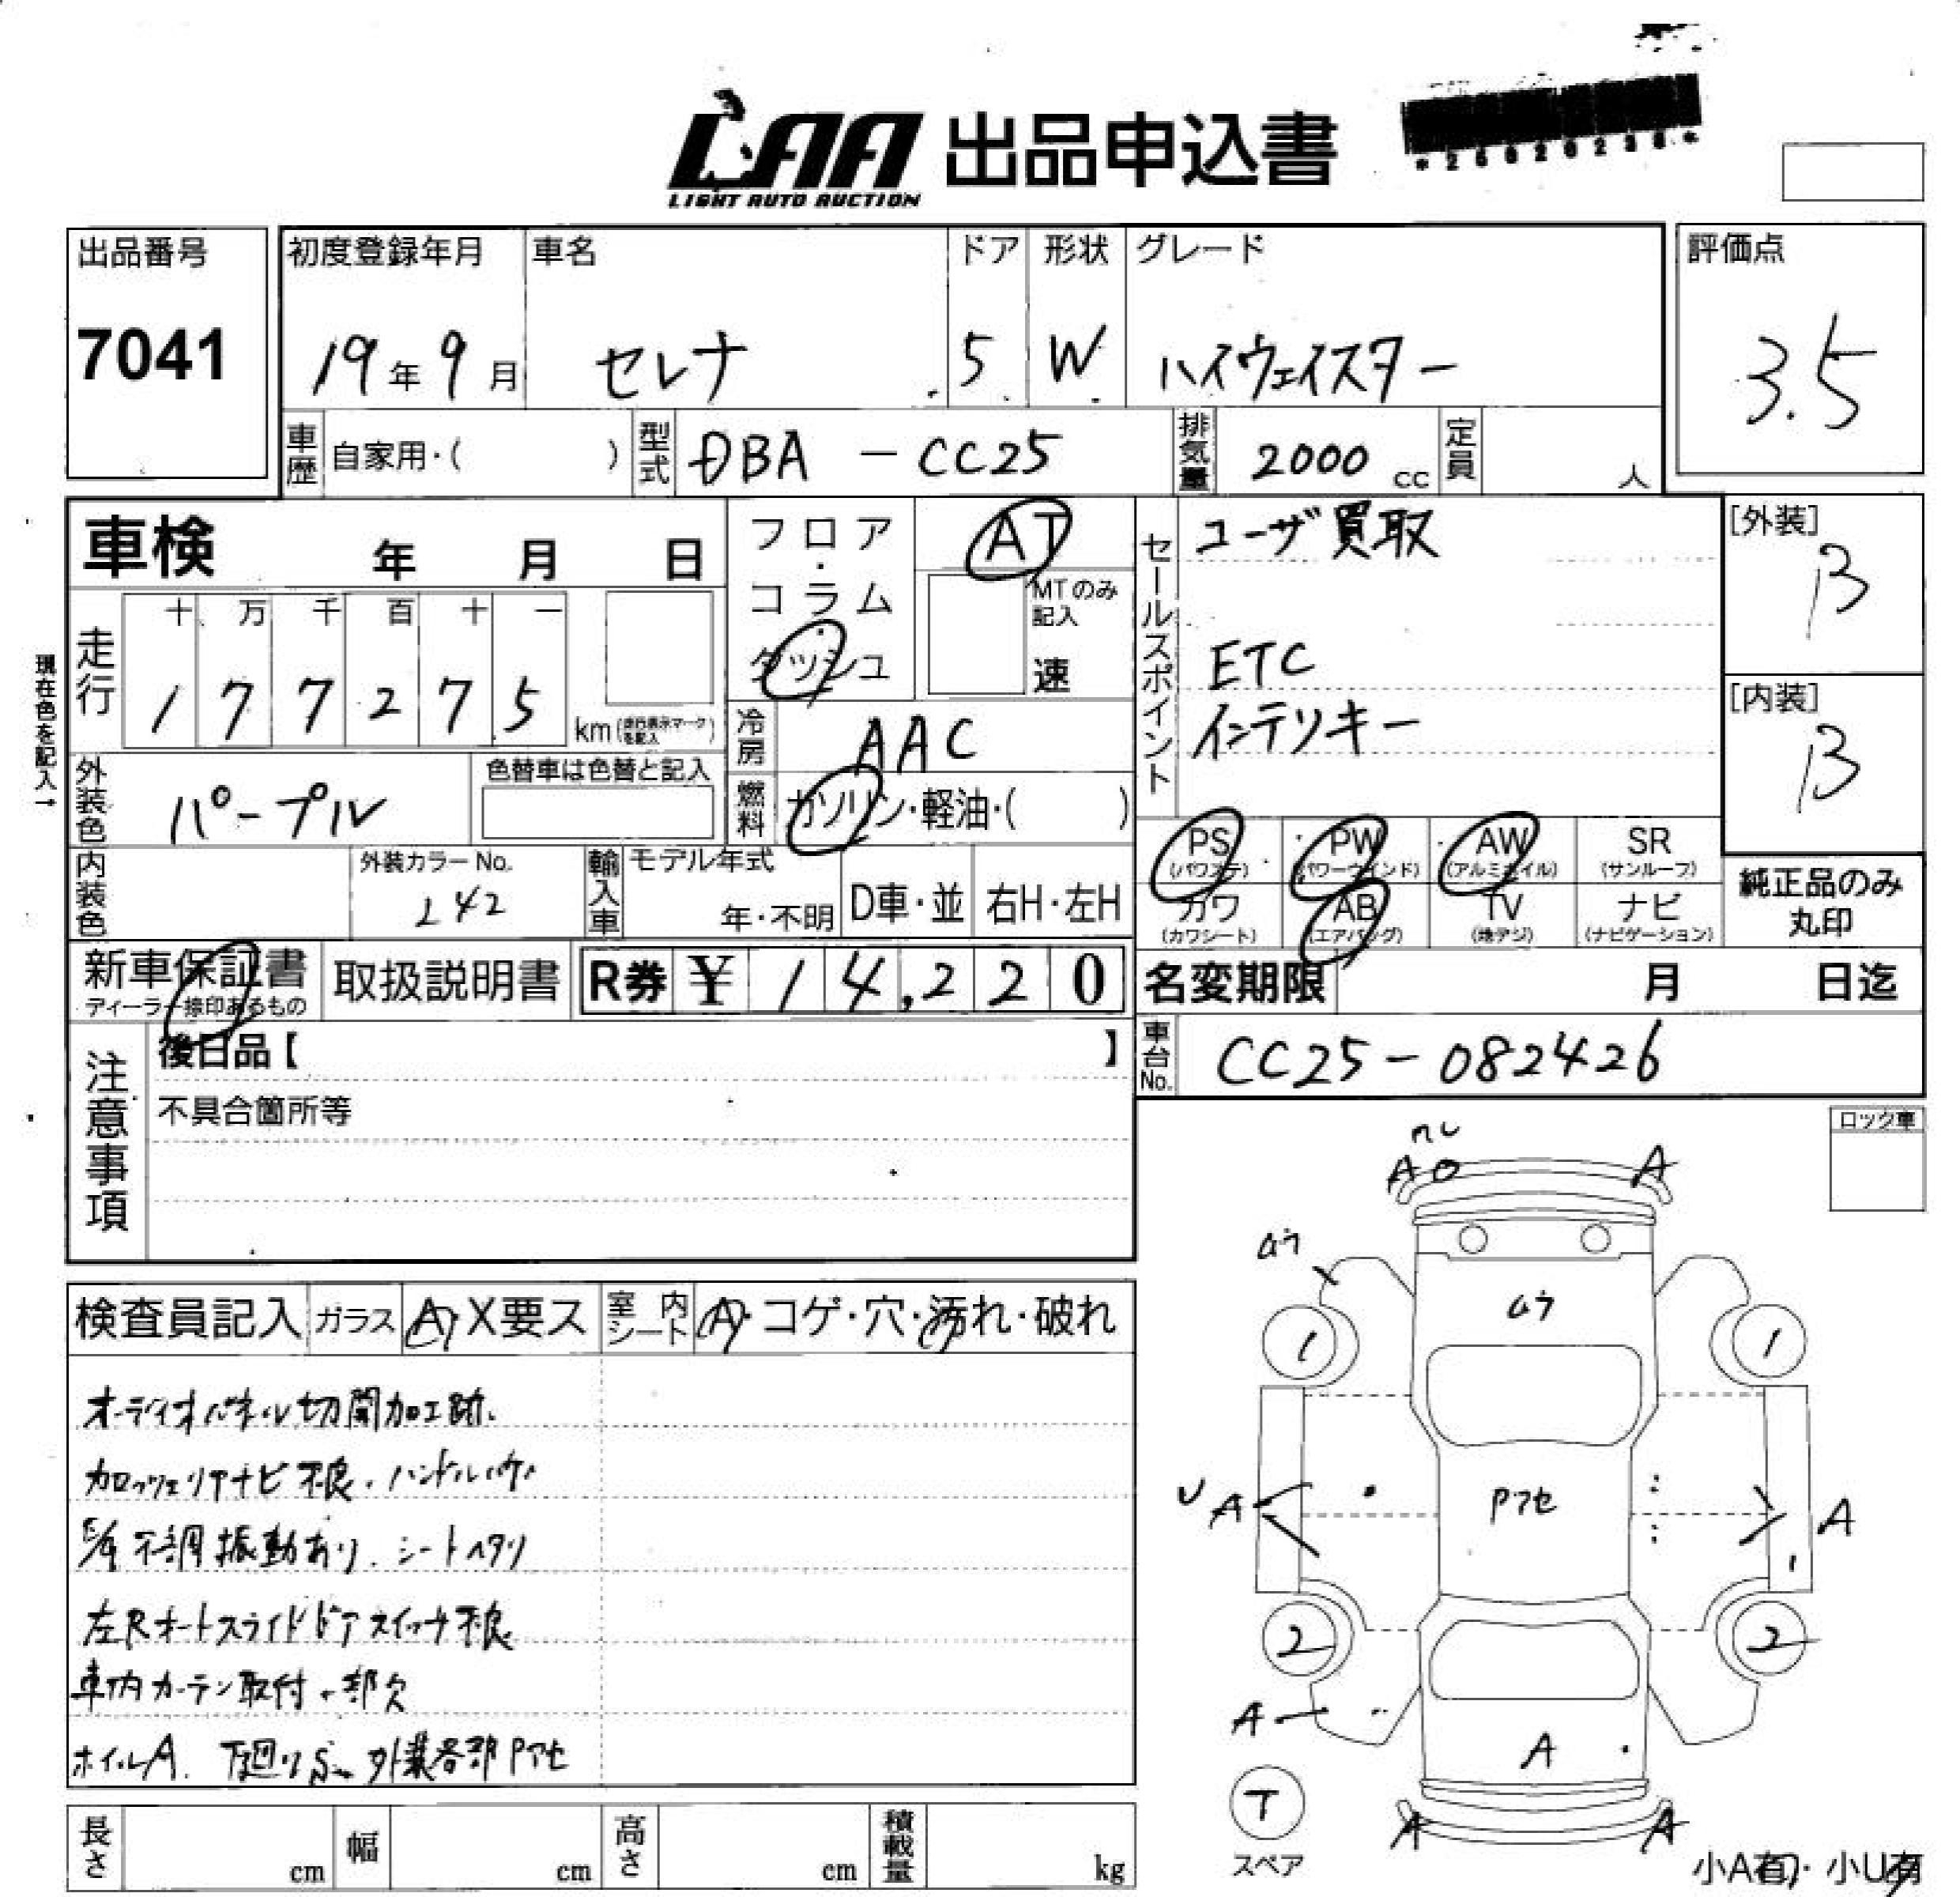 LAA 出品申込書
LIGHT AUTO AUCTION
出品番号
7041
初度登録年月
19年9月
車名
セレナ
ドア
5
形状
W
グレード
ハイウェイスター
評価点
3.5
車歴 自家用・( )
型式 DBA - CC25
排気量 2000 cc
定員 人
車検 年 月 日
フロア・コラム・ダッシュ
AT
MTのみ記入
速
走行
十 万 千 百 十 一
1 7 7 2 7 5 km (走行表示マークを記入)
現在色を記入→
冷房 AAC
外装色 パープル
色替車は色替と記入
燃料 ガソリン・軽油・( )
内装色
外装カラーNo.
L42
輸入車 モデル年式
年・不明
D車・並
右H・左H
セールスポイント
ユーザ買取
ETC
インテリキー
[外装]
B
[内装]
B
PS (パワステ)
PW (パワーウインド)
AW (アルミホイル)
SR (サンルーフ)
カワ (カワシート)
AB (エアバッグ)
TV (地デジ)
ナビ (ナビゲーション)
純正品のみ
丸印
新車保証書
ディーラー捺印あるもの
取扱説明書
R券 ¥14,220
名変期限 月 日迄
車台No. CC25-082426
注意事項
後日品【 】
不具合箇所等
ロック車
検査員記入 ガラス A・X要ス 室内シート A・コゲ・穴・汚れ・破れ
オーディオパネル切開加工跡.
カロッツェリアナビ不良.ハンドルハゲ
E/g不調振動あり.シートヘタリ
左Rオートスライドドアスイッチ不良
車内カーテン取付.一部欠
ホイルA. 下廻りS. 外装各部Pアセ
A
A
ムラ
ムラ
1
1
U A
Pアセ
A
2
2
A
A
T
スペア
A
A
小A有・小U有
長さ cm
幅 cm
高さ cm
積載量 kg